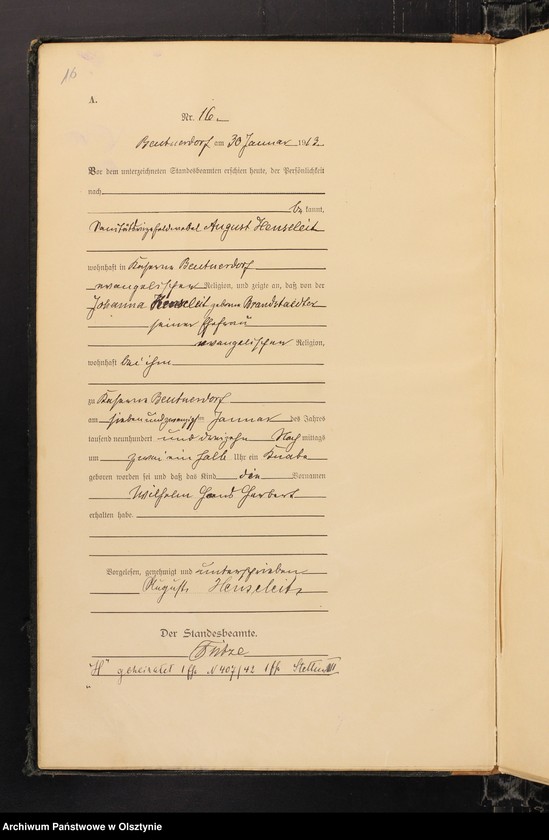 16
A.
Nr. 16.
Beutnerdorf am 30 Januar 1913.
Vor dem unterzeichneten Standesbeamten erschien heute, der Persönlichkeit
nach
be kannt,
Sanitätsvizefeldwebel August Henseleit
wohnhaft in Kaserne Beutnerdorf
evangelischer Religion, und zeigte an, daß von der
Johanna Henseleit geborene Brandstaedter
seiner Ehefrau
evangelischer Religion,
wohnhaft bei ihm
zu Kaserne Beutnerdorf
am siebenundzwanzigsten Januar des Jahres
tausend neunhundert und dreizehn Nach mittags
um zwei ein halb Uhr ein Knabe
geboren worden sei und daß das Kind die Vornamen
Wilhelm Hans Herbert
erhalten habe.
Vorgelesen, genehmigt und unterschrieben
August Henseleit
Der Standesbeamte.
"H" geheiratet 1 Eh. N 407/42 Stettin III
Archiwum Państwowe w Olsztynie